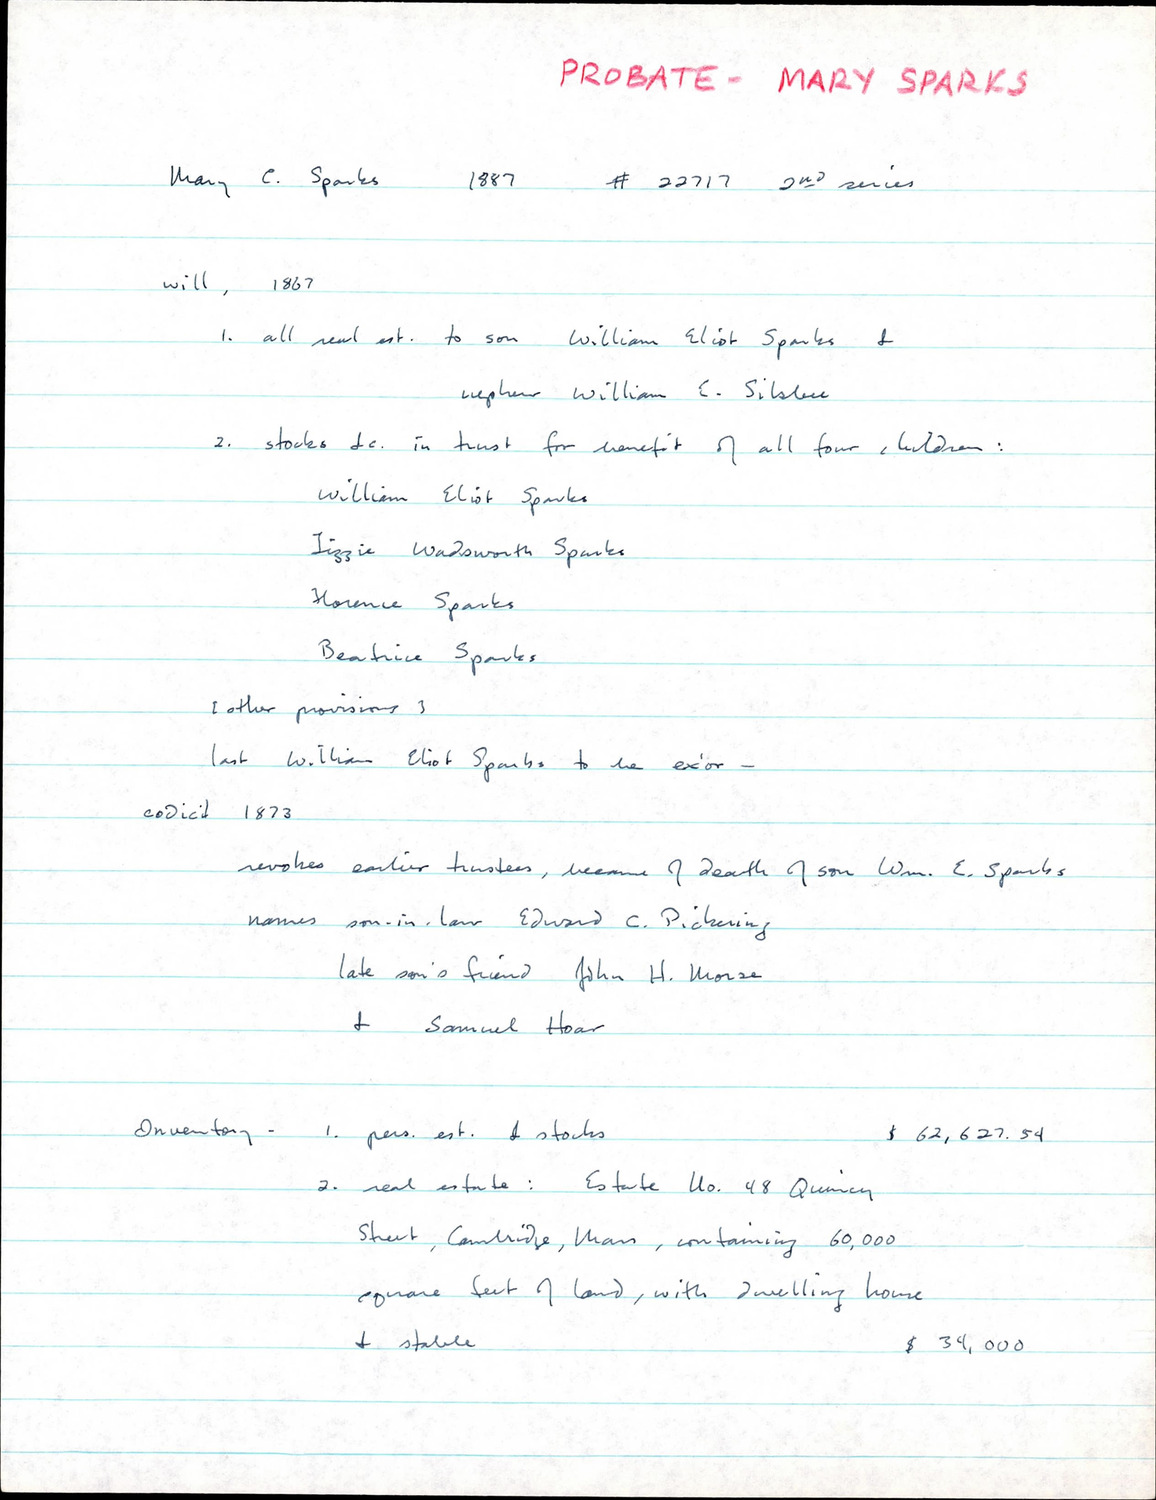 PROBATE - MARY SPARKS
Mary C. Sparks 1887 # 22717 2nd series
will, 1867
1. all real est. to son William Eliot Sparks &
nephew William E. Silsbee
2. stocks &c. in trust for benefit of all four children:
William Eliot Sparks
Lizzie Wadsworth Sparks
Florence Sparks
Beatrice Sparks
[other provisions]
last William Eliot Sparks to be ex'or -
codicil 1873
revokes earlier trustees, because of death of son Wm. E. Sparks
names son-in-law Edward C. Pickering
late son's friend John H. Morse
& Samuel Hoar
Inventory - 1. pers. est. & stocks $ 62,627.54
2. real estate: Estate No. 48 Quincy
Street, Cambridge, Mass, containing 60,000
square feet of land, with dwelling house
& stable $ 34,000